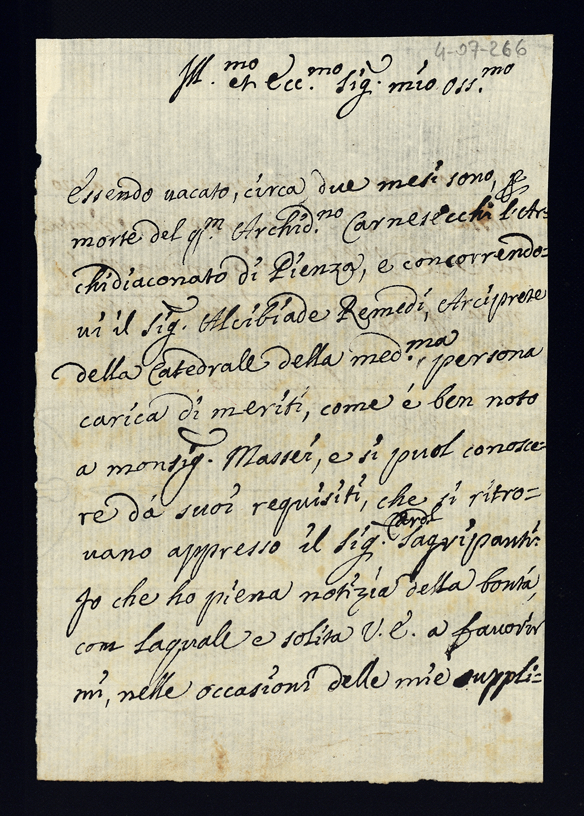 4-07-266
Ill.mo et Ecc.mo Sig.r mio Oss.mo
Essendo vacato, circa due mesi sono, p
morte del q.m Archid.no Carnesecchi l'Ar=
chidiaconato di Pienza, e concorrendo=
vi il Sig. Alcibiade Remedi, Arciprete
della Catedrale della med.ma, persona
carica di meriti, come é ben noto
a monsig. Massei, e si puol conosce=
re dá suoi requisiti, che si ritro=
vano appresso il Sig. Card.
Io che ho piena notizia della bontá,
con laquale e solita V. E. a favorir
mi, nelle occasioni delle mie suppli=